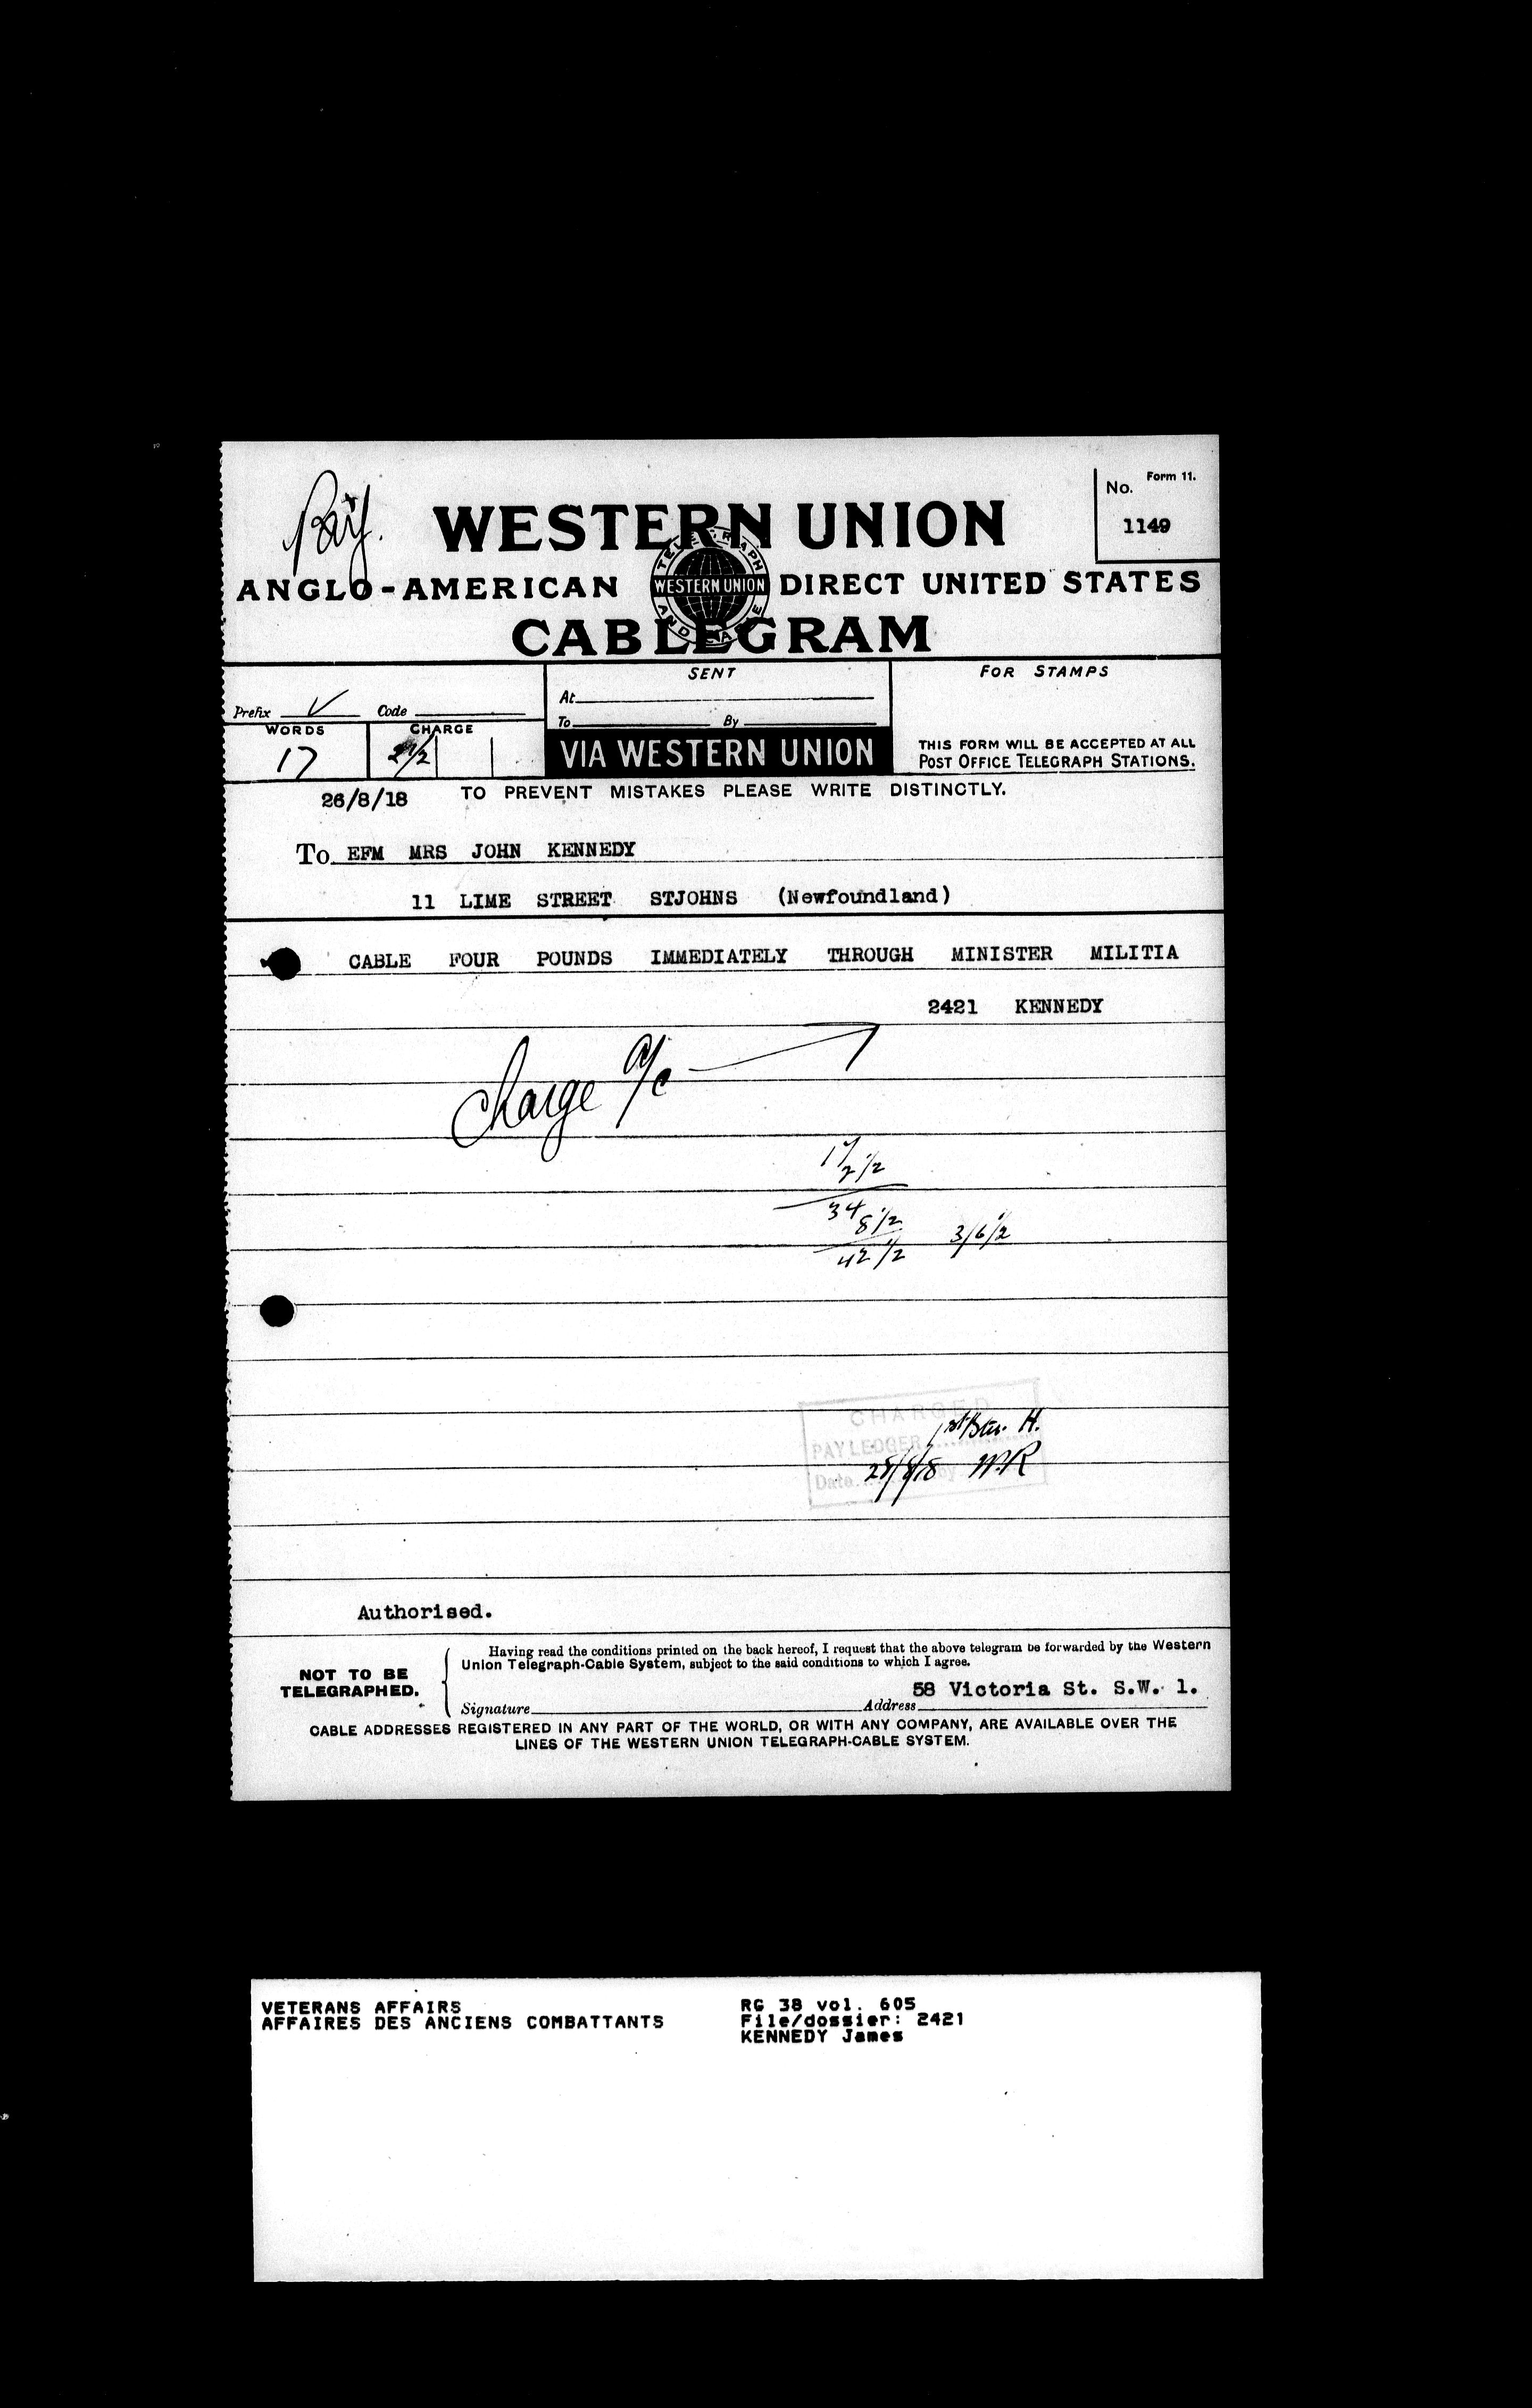 Form 11.
No.
1149
WESTERN UNION
TELEGRAPH
WESTERN UNION
AND CABLE
ANGLO-AMERICAN DIRECT UNITED STATES
CABLEGRAM
SENT
FOR STAMPS
Prefix V Code
At
To By
WORDS CHARGE
17 2½
VIA WESTERN UNION
THIS FORM WILL BE ACCEPTED AT ALL
POST OFFICE TELEGRAPH STATIONS.
26/8/18 TO PREVENT MISTAKES PLEASE WRITE DISTINCTLY.
To EFM MRS JOHN KENNEDY
11 LIME STREET STJOHNS (Newfoundland)
CABLE FOUR POUNDS IMMEDIATELY THROUGH MINISTER MILITIA
2421 KENNEDY
Charge a/c
17
2 1/2
34
8 1/2
42 1/2 3/6 1/2
CHARGED
PAY LEDGER
Date 28/8/18 by
Authorised.
NOT TO BE
TELEGRAPHED.
Having read the conditions printed on the back hereof, I request that the above telegram be forwarded by the Western
Union Telegraph-Cable System, subject to the said conditions to which I agree.
58 Victoria St. S.W. 1.
Signature Address
CABLE ADDRESSES REGISTERED IN ANY PART OF THE WORLD, OR WITH ANY COMPANY, ARE AVAILABLE OVER THE
LINES OF THE WESTERN UNION TELEGRAPH-CABLE SYSTEM.
VETERANS AFFAIRS
AFFAIRES DES ANCIENS COMBATTANTS
RG 38 vol. 605
File/dossier: 2421
KENNEDY James